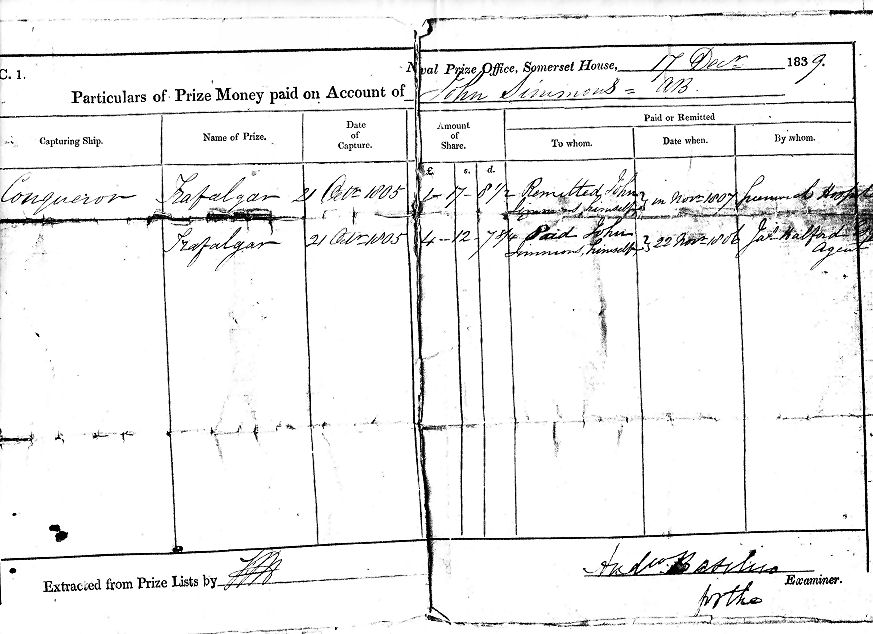 C. 1.
Naval Prize Office, Somerset House, 17 Decr 1839.
Particulars of Prize Money paid on Account of John Simmons = AB.
Capturing Ship. Name of Prize. Date of Capture. Amount of Share. Paid or Remitted
To whom. Date when. By whom.
£. s. d.
Conqueror Trafalgar 21 Octr 1805 1 - 17 - 8 1/2 Remitted John
Simmons, himself } in Novr 1807 Greenwich Hospital
Trafalgar 21 Octr 1805 4 - 12 - 7 3/4 Paid John
Simmons, himself } 22 Novr 1806 Jas Halford
Agent
Extracted from Prize Lists by
Examiner.
for the